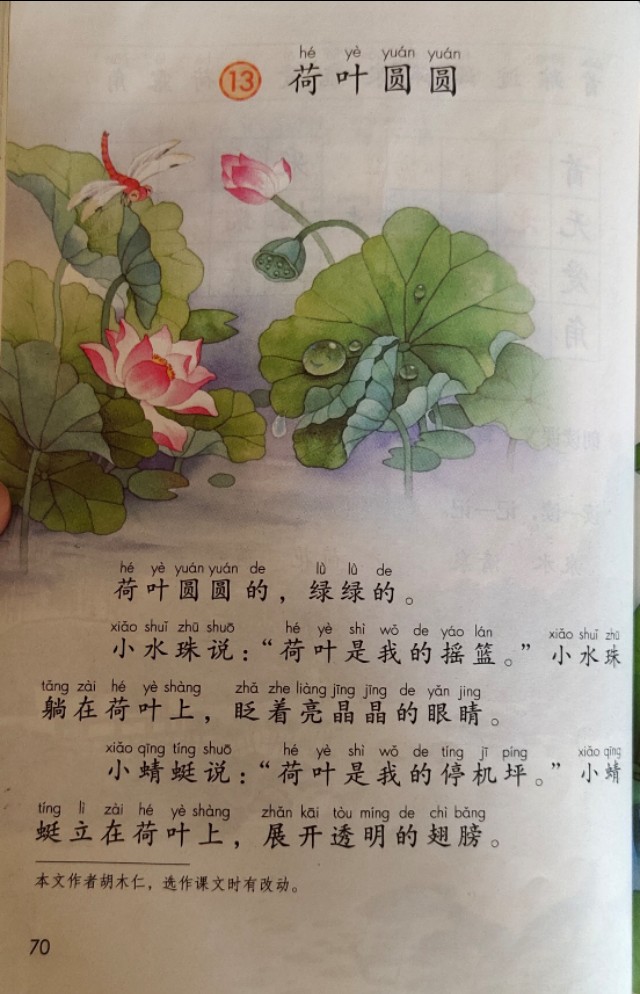 hé yè yuán yuán
13 荷叶圆圆
hé yè yuán yuán de lǜ lǜ de
荷叶圆圆的，绿绿的。
xiǎo shuǐ zhū shuō hé yè shì wǒ de yáo lán xiǎo shuǐ zhū
小水珠说：“荷叶是我的摇篮。”小水珠
tǎng zài hé yè shàng zhǎ zhe liàng jīng jīng de yǎn jing
躺在荷叶上，眨着亮晶晶的眼睛。
xiǎo qīng tíng shuō hé yè shì wǒ de tíng jī píng xiǎo qīng
小蜻蜓说：“荷叶是我的停机坪。”小蜻
tíng lì zài hé yè shàng zhǎn kāi tòu míng de chì bǎng
蜓立在荷叶上，展开透明的翅膀。
本文作者胡木仁，选作课文时有改动。
70